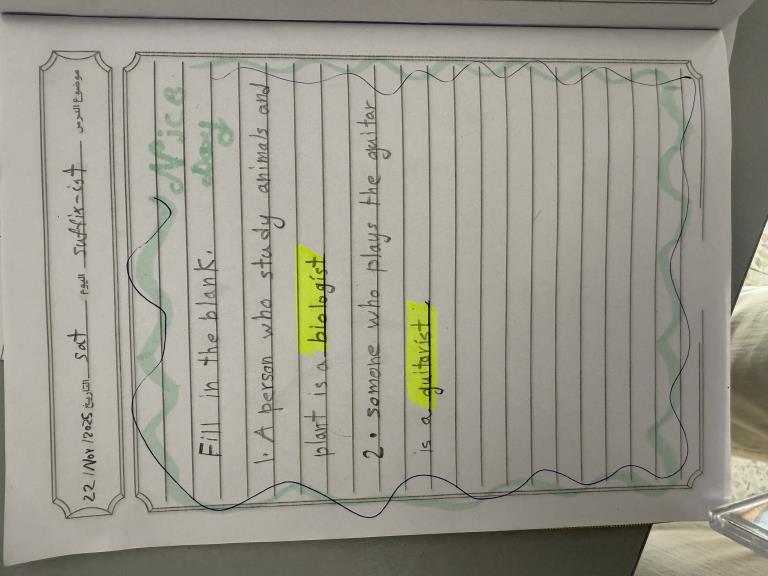 22 Nov 2025 التاريخ sat اليوم suffix-ist موضوع الدرس
Nice
Day
Fill in the blank.
1. A person who study animals and
plant is a biologist
2. somone who plays the guitar
is a guitarist.